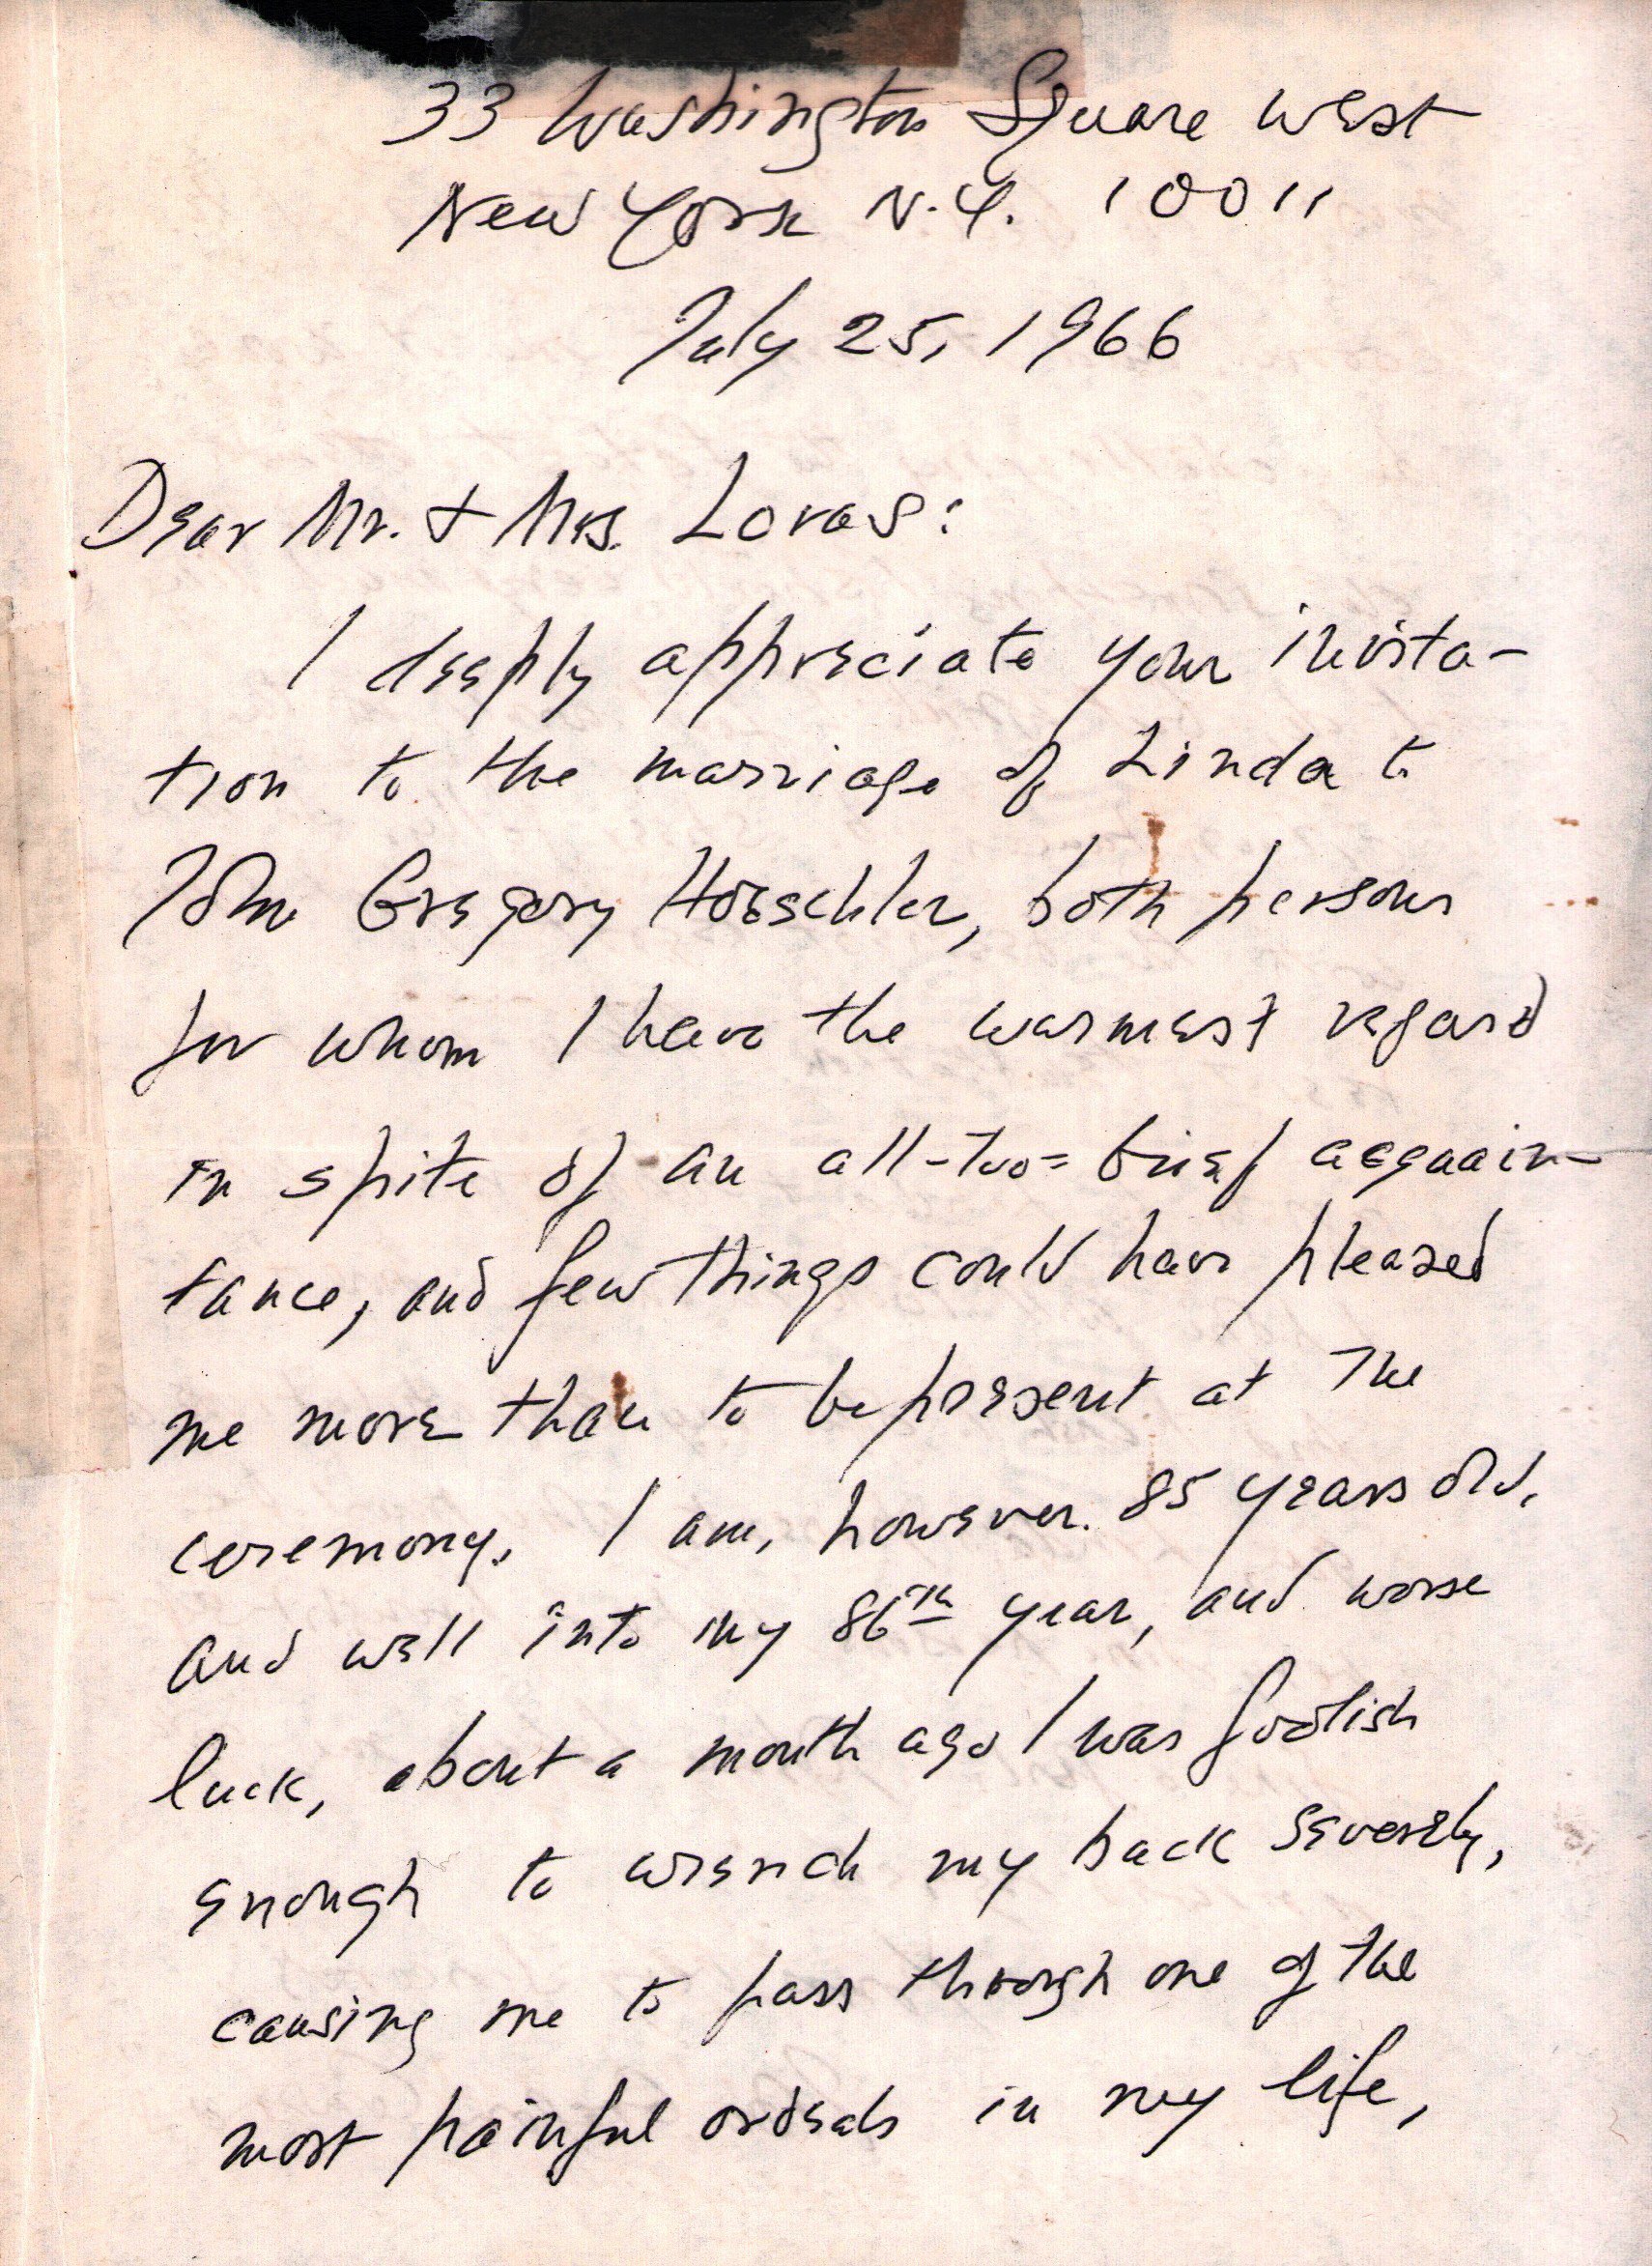 33 Washington Square West
New York N.Y. 10011
July 25, 1966
Dear Mr. + Mrs. Lovas:
I deeply appreciate your invita-
tion to the marriage of Linda to
John Gregory Hoeschler, both persons
for whom I have the warmest regard
in spite of an all-too-brief acquain-
tance, and few things could have pleased
me more than to be present at the
ceremony. I am, however. 85 years old,
and well into my 86th year, and worse
luck, about a month ago I was foolish
enough to wrench my back severely,
causing me to pass through one of the
most painful ordeals in my life,